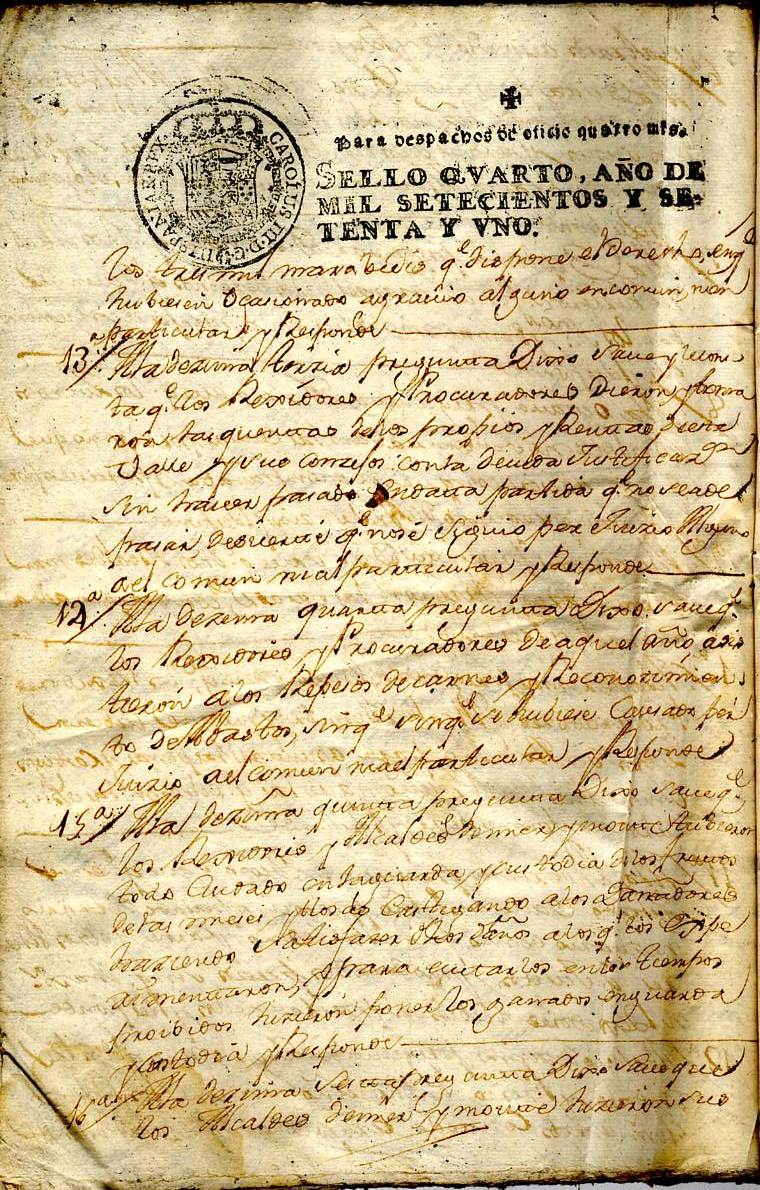 ✠
Para despachos de oficio quatro mrs.
SELLO QVARTO, AÑO DE
MIL SETECIENTOS Y SE-
TENTA Y VNO.
CAROLUS III D G HISPANIAR REX
los tres mil marabedis q.e dispone el Derecho, sin q.e
hubiesen Ocasionado agravio alguno en comun, ni en
particular y Responde
13.a A la dezima terzia pregunta Dixo save y le cons
ta q.e los Rexidores y Procuradores Dieron y toma
ron las quentas de los propios y Rentas de este
Valle y sus conzejos con la devida Justificaz.on
sin hacer pasado en data partida q.e no sea de
pasar, de suerte q.e no se siguio per Juizio Alguno
al comun ni al particular y Responde
14.a A la dezima quarta pregunta Dixo save q.e
los Rexidores y Procuradores de aquel año, asis
tieron a los Repesos de carnes y Reconozimien
to de Abastos, sin q.e se hubiese Causado per
Juizio al comun ni al particular y Responde
15.a A la dezima quinta pregunta Dixo save q.e
los Rexidores y Alcaldes de mier y monte tubieron
todo Cuidado en la guarda y custodia de los frutos
de las mieses y Castigando a los Dañadores
haciendo satisfazer los Daños a los q.e los Espe
rimentaron, y para evitarlos en los tiempos
proibidos hizieron poner los ganados en guarda
y custodia y Responde
16.a A la dezima sesta pregunta Dixo save que
los Alcaldes de mier y monte hizieron sus